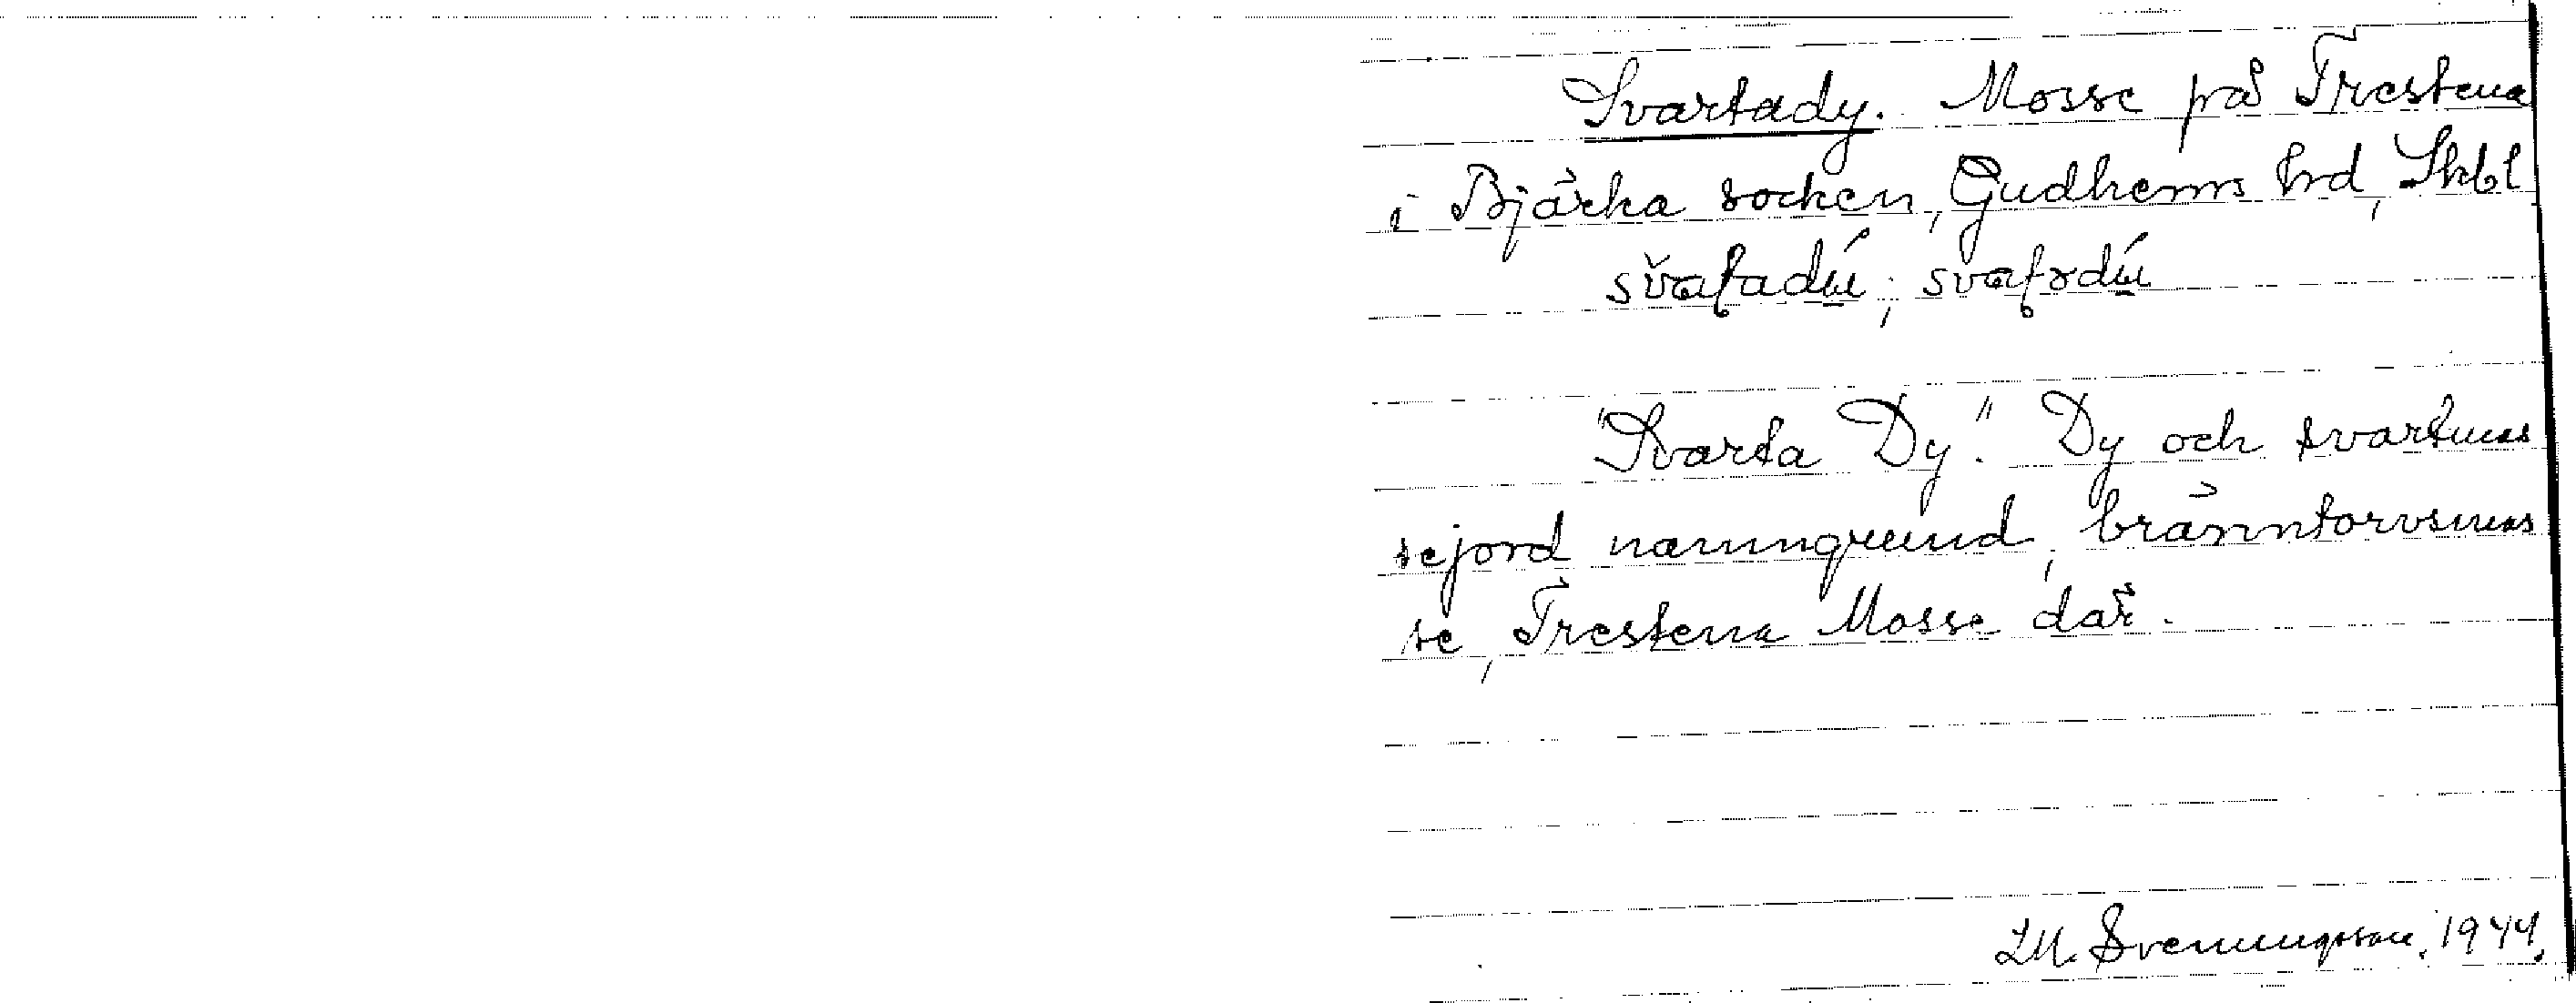 Svartady. Mosse på Trestena
i Bjärka socken, Gudhems hrd, Skbl
"Svarta Dy". Dy och svartmos
sejord namngrund, bränntorvsmos
se, Trestena Mosse där.
L.M. Svenungsson. 1944.